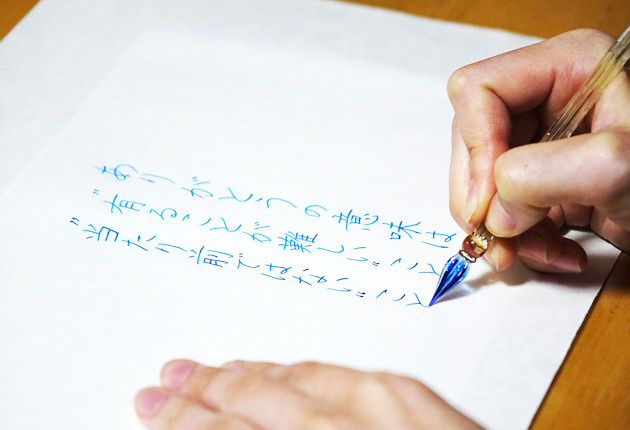 ありがとうの意味は
"有ることが難しい"こと
"当たり前ではない"こと